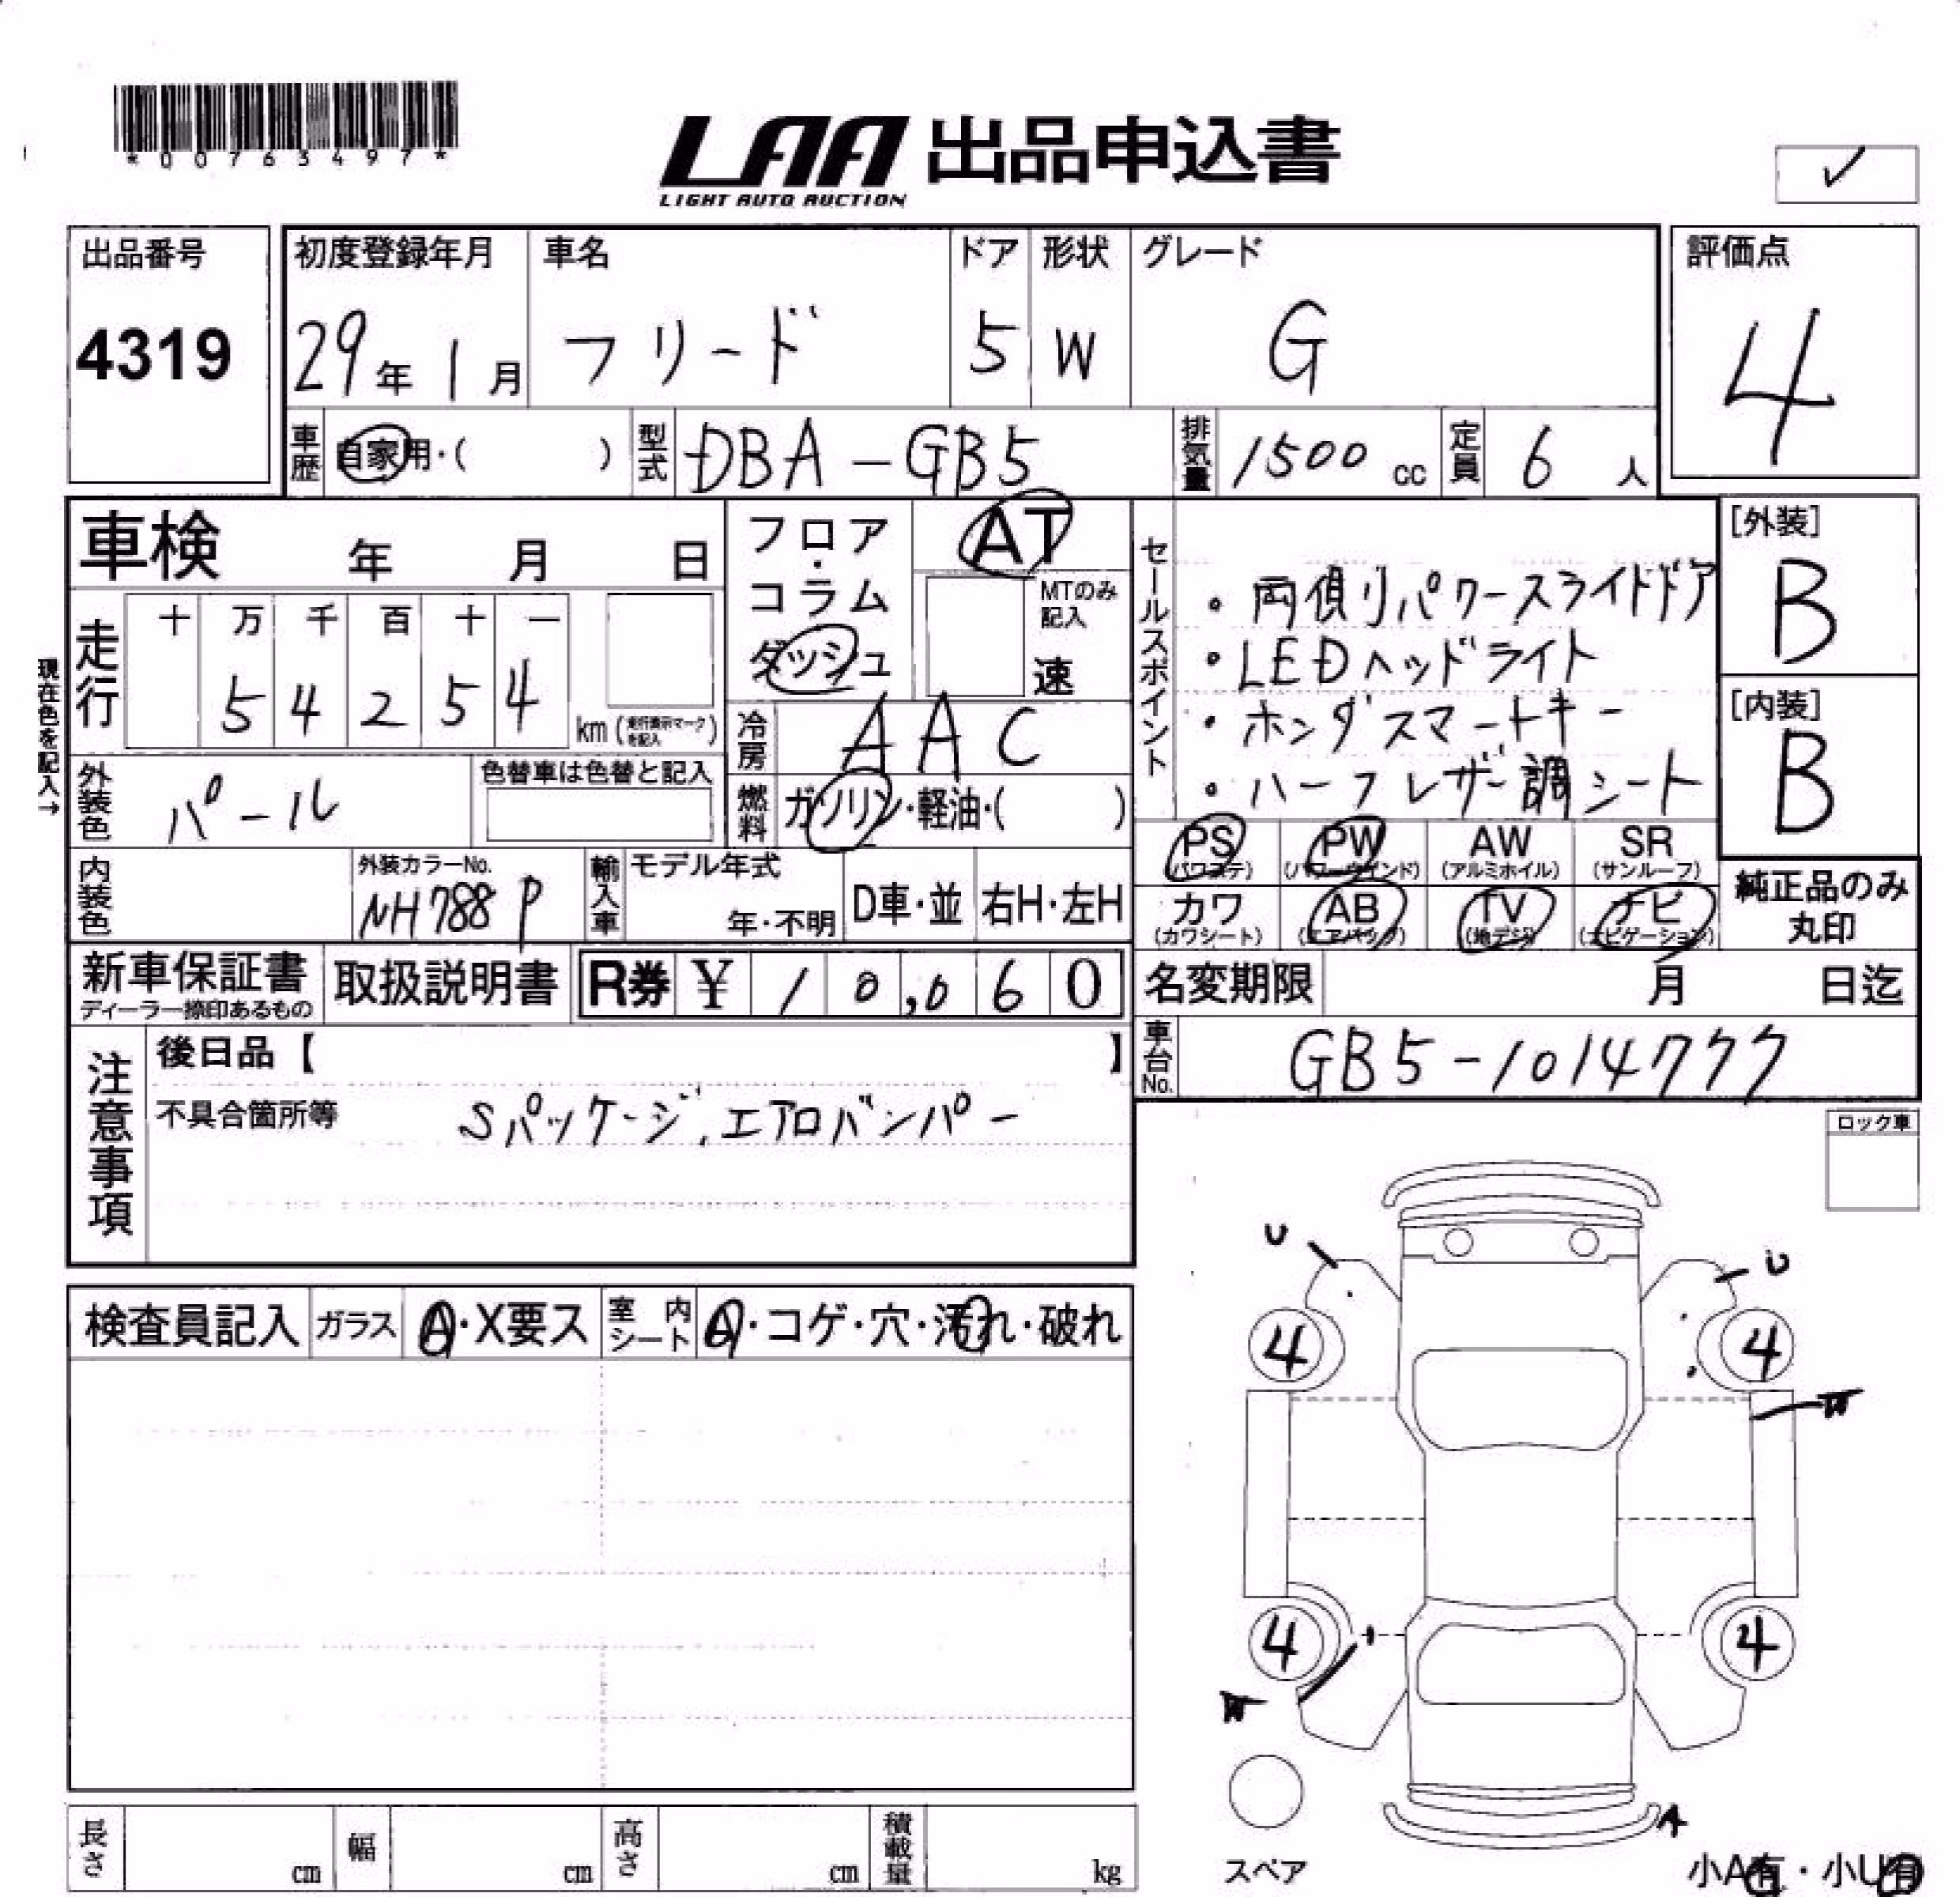 *00763497*
LAA 出品申込書
LIGHT AUTO AUCTION
✓
出品番号 初度登録年月 車名 ドア 形状 グレード 評価点
4319 29年 1月 フリード 5 W G 4
車歴 自家用・( ) 型式 DBA-GB5 排気量 1500 cc 定員 6 人
車検 年 月 日
フロア・コラム ダッシュ
AT
MTのみ記入
速
セールスポイント
・両側リパワースライドドア
・LEDヘッドライト
・ホンダスマートキー
・ハーフレザー調シート
[外装]
B
[内装]
B
現在色を記入→
走行 十 万 千 百 十 一
5 4 2 5 4
km(走行表示マークを記入)
冷房 AAC
外装色 パール 色替車は色替と記入
燃料 ガソリン・軽油・( )
PS AB PW AW SR
(パワステ) (パワーウインド) (アルミホイル) (サンルーフ)
カワ AB TV ナビ
(カワシート) (エアバッグ) (地デジ) (ナビゲーション)
純正品のみ
丸印
内装色 外装カラーNo. NH788P 輸入車 モデル年式 年・不明 D車・並 右H・左H
新車保証書 取扱説明書 R券 ¥ 10,060 名変期限 月 日迄
ディーラー捺印あるもの
車台No. GB5-1014777
注意事項
後日品【 】
不具合箇所等 Sパッケージ、エアロバンパー
ロック車
検査員記入 ガラス A・X要ス 室内シート A・コゲ・穴・汚れ・破れ
U U
4 4
W
4 4
W
A
スペア
長さ cm 幅 cm 高さ cm 積載量 kg
小A有・小U有